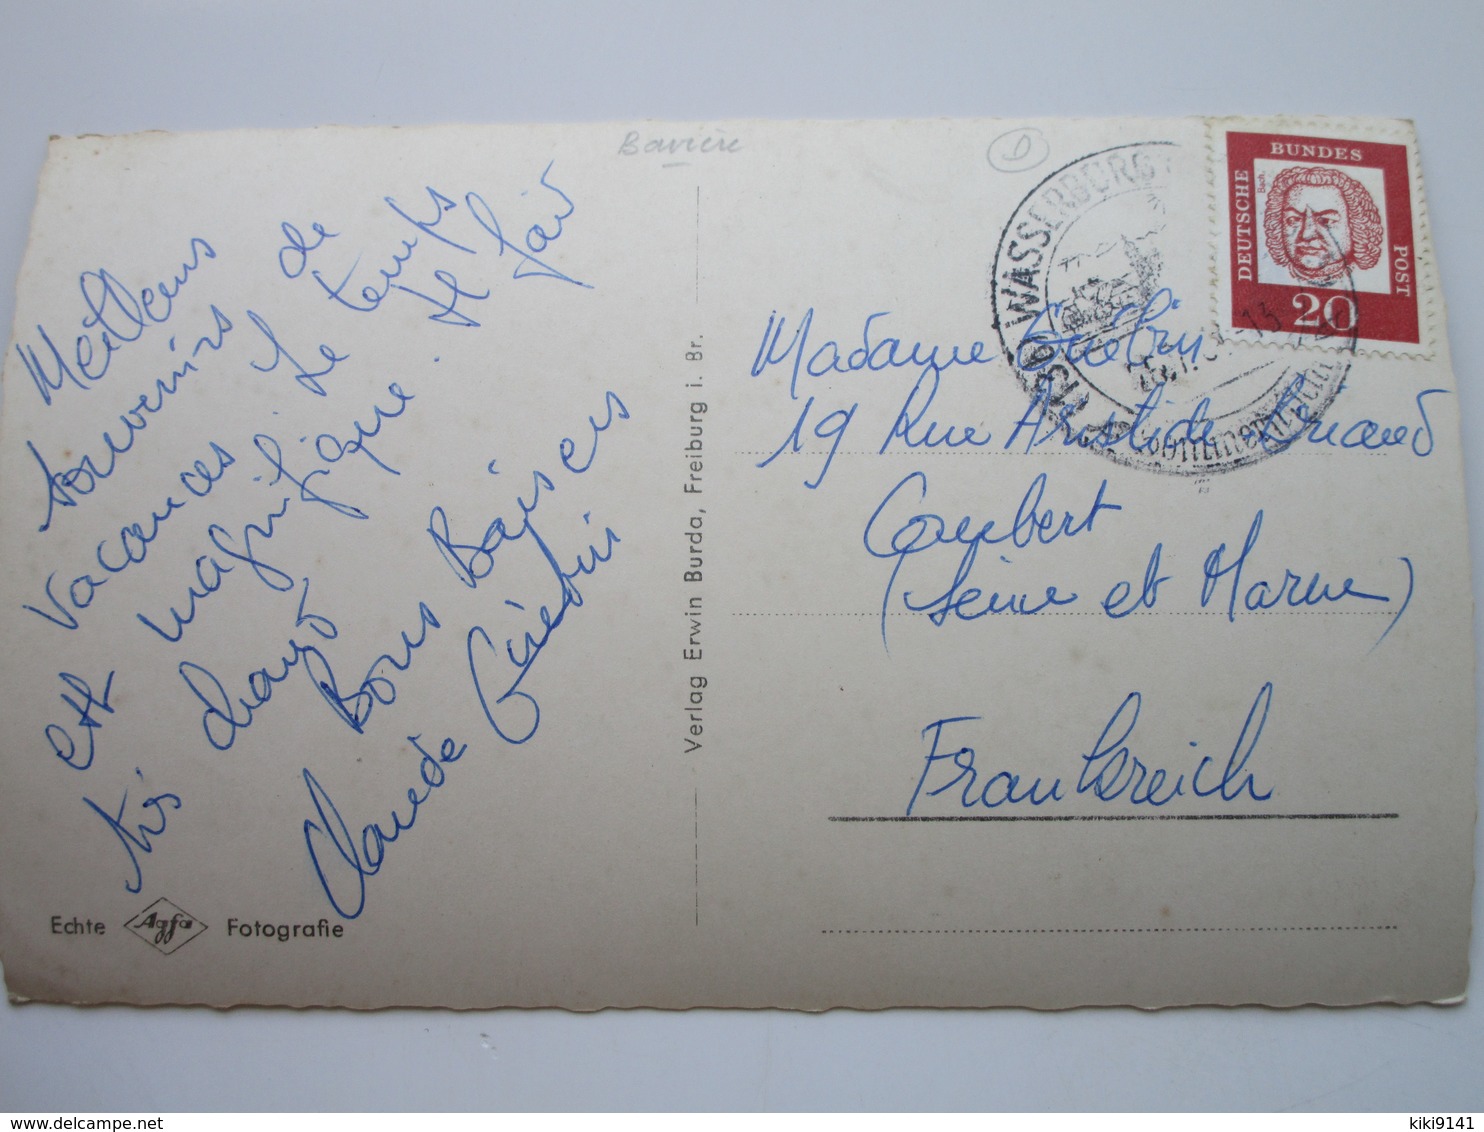 Bavière
D
Meilleurs
souvenirs de
vacances. Le temps
est magnifique. Il fait
très chaud
Bons Baisers
Claude Guébin
Echte Agfa Fotografie
Verlag Erwin Burda, Freiburg i. Br.
WASSERBURG
DEUTSCHE
BUNDES
POST
Bach
20
Madame Guébin
19 Rue Aristide Briand
Coubert
(Seine et Marne)
Frankreich
delcampe.net
kiki9141